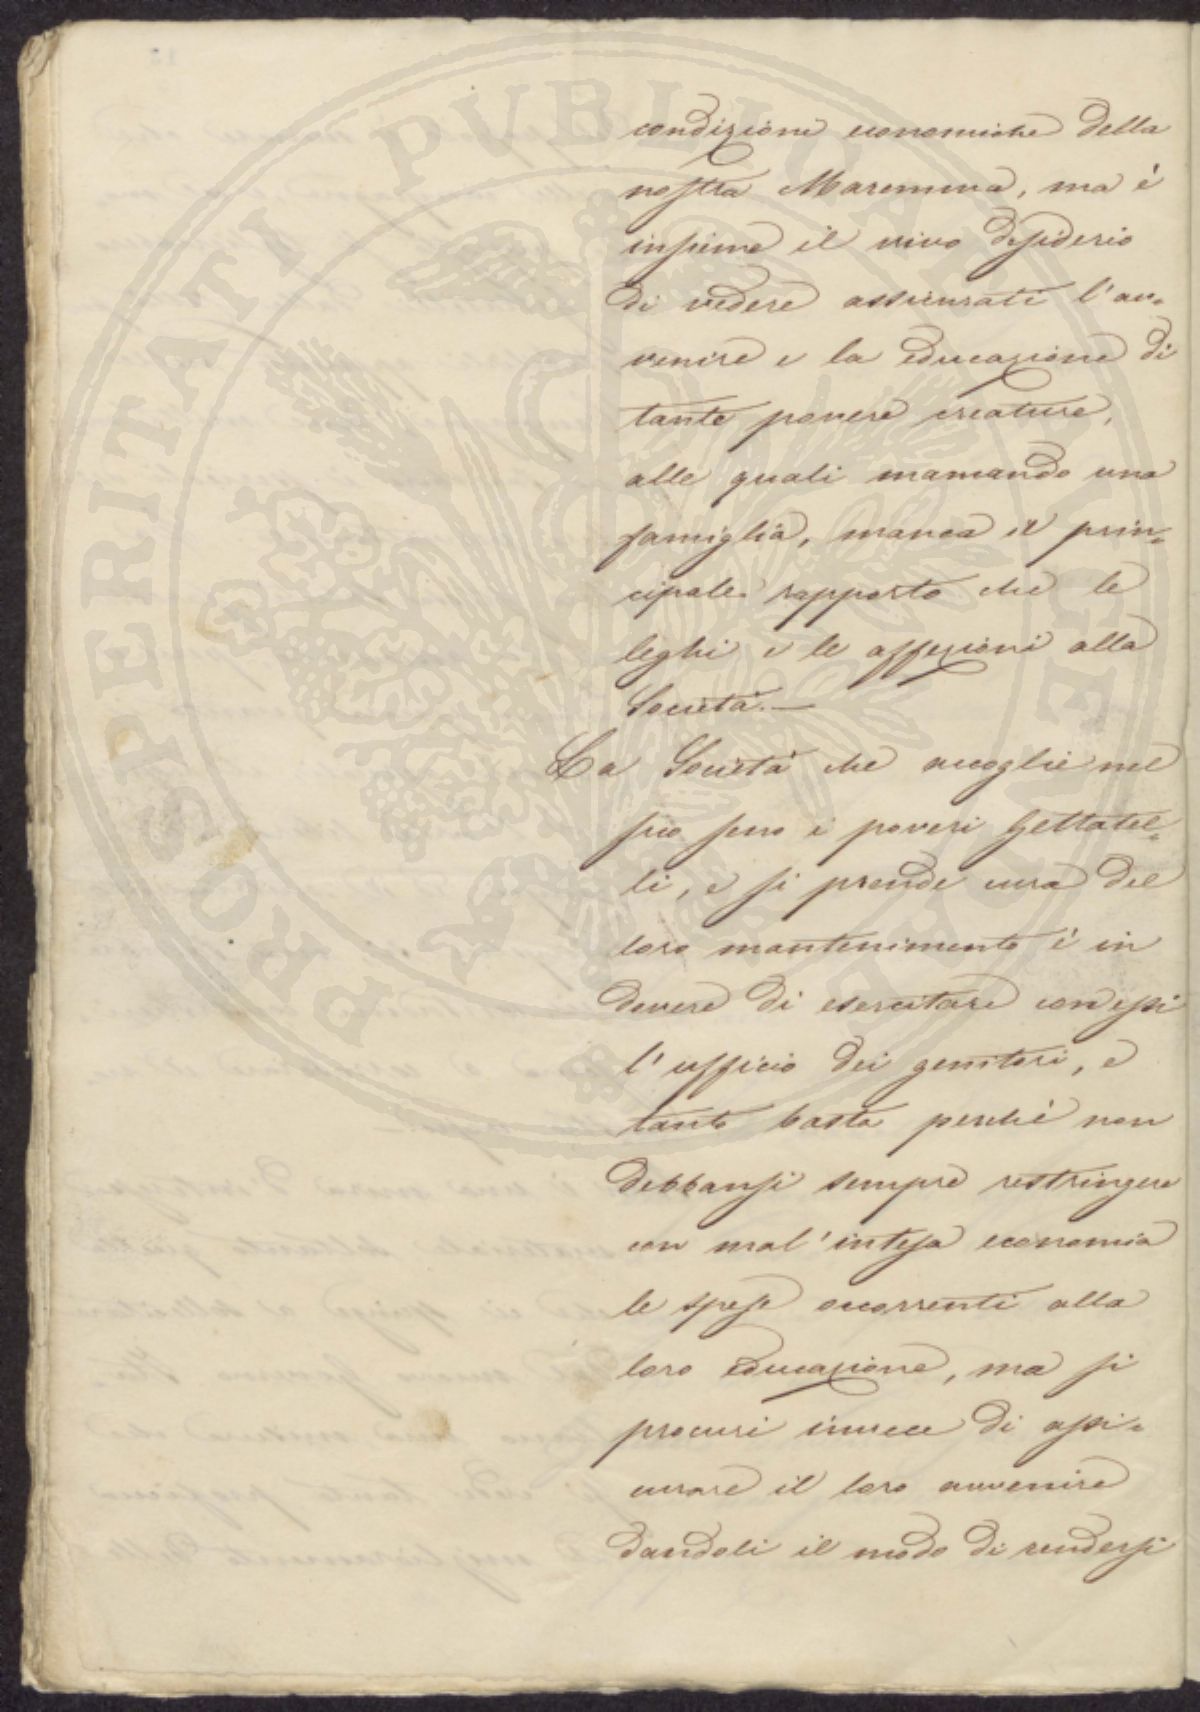 PROSPERITATI PUBLICAE AUGENDAE
condizioni economiche della
nostra Maremma, ma è
insieme il vivo desiderio
di vedere assicurati l'av=
venire e la educazione di
tante povere creature,
alle quali mancando una
famiglia, manca il prin=
cipale rapporto che le
leghi e le affezioni alla
Società.—
La Società che accoglie nel
suo seno i poveri Gettatel=
li, e si prende cura del
loro mantenimento è in
dovere di esercitare con essi
l'ufficio dei genitori, e
tanto basta perchè non
debbansi sempre restringere
con mal'intesa economia
le spese occorrenti alla
loro educazione, ma si
procuri invece di assi=
curare il loro avvenire
dandoli il modo di rendersi